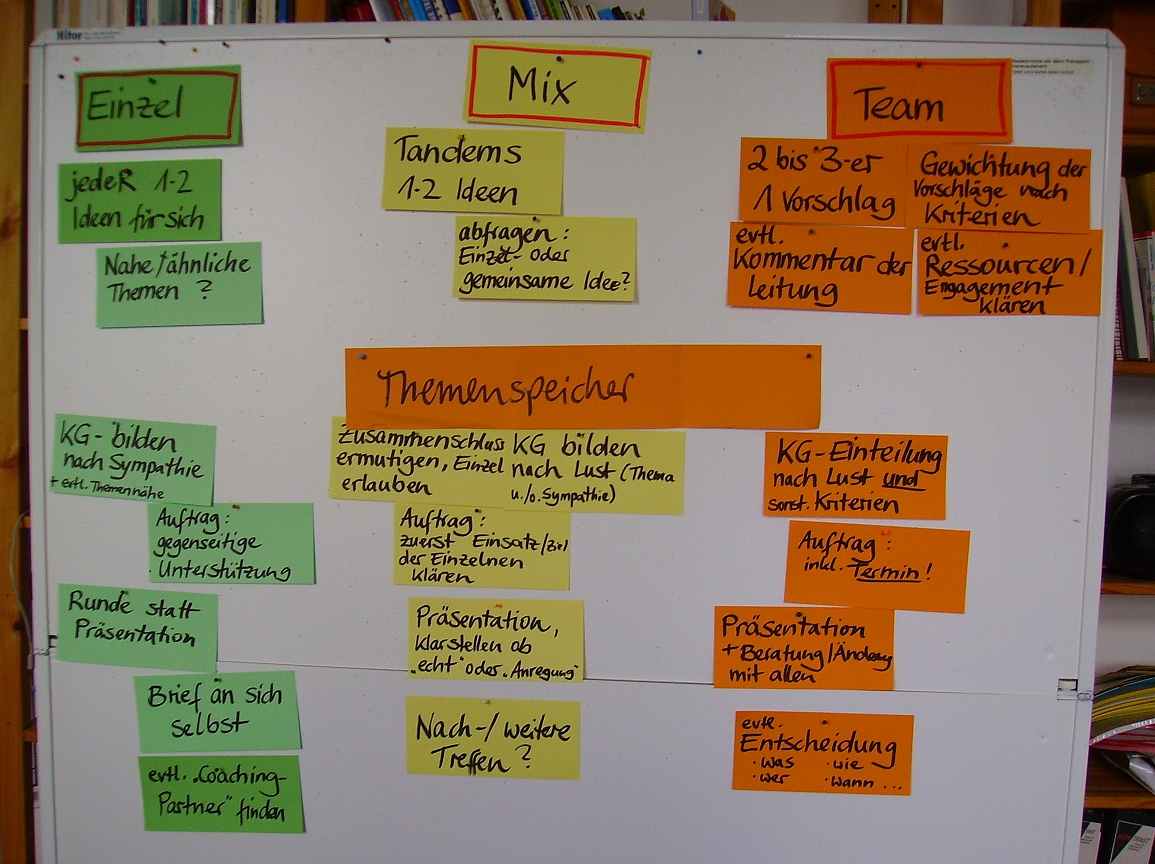 Einzel
jedeR 1-2
Ideen für sich
Nahe/ähnliche
Themen ?
Mix
Tandems
1-2 Ideen
abfragen :
Einzel- oder
gemeinsame Idee?
Team
2 bis 3-er
1 Vorschlag
Gewichtung der
Vorschläge nach
Kriterien
evtl.
Kommentar der
Leitung
evtl.
Ressourcen/
Engagement
klären
Themenspeicher
KG- bilden
nach Sympathie
+ evtl. Themennähe
Auftrag :
gegenseitige
Unterstützung
Runde statt
Präsentation
Brief an sich
selbst
evtl. „Coaching-
Partner" finden
Zusammenschluss
ermutigen, Einzel
erlauben
KG bilden
nach Lust (Thema
u./o. Sympathie)
Auftrag :
zuerst Einsatz/Ziel
der Einzelnen
klären
Präsentation,
klarstellen ob
„echt" oder „Anregung"
Nach-/ weitere
Treffen ?
KG-Einteilung
nach Lust und
sonst. Kriterien
Auftrag :
inkl. Termin !
Präsentation
+ Beratung/Änderung
mit allen
evtl.
Entscheidung
· was · wie
· wer · wann ...